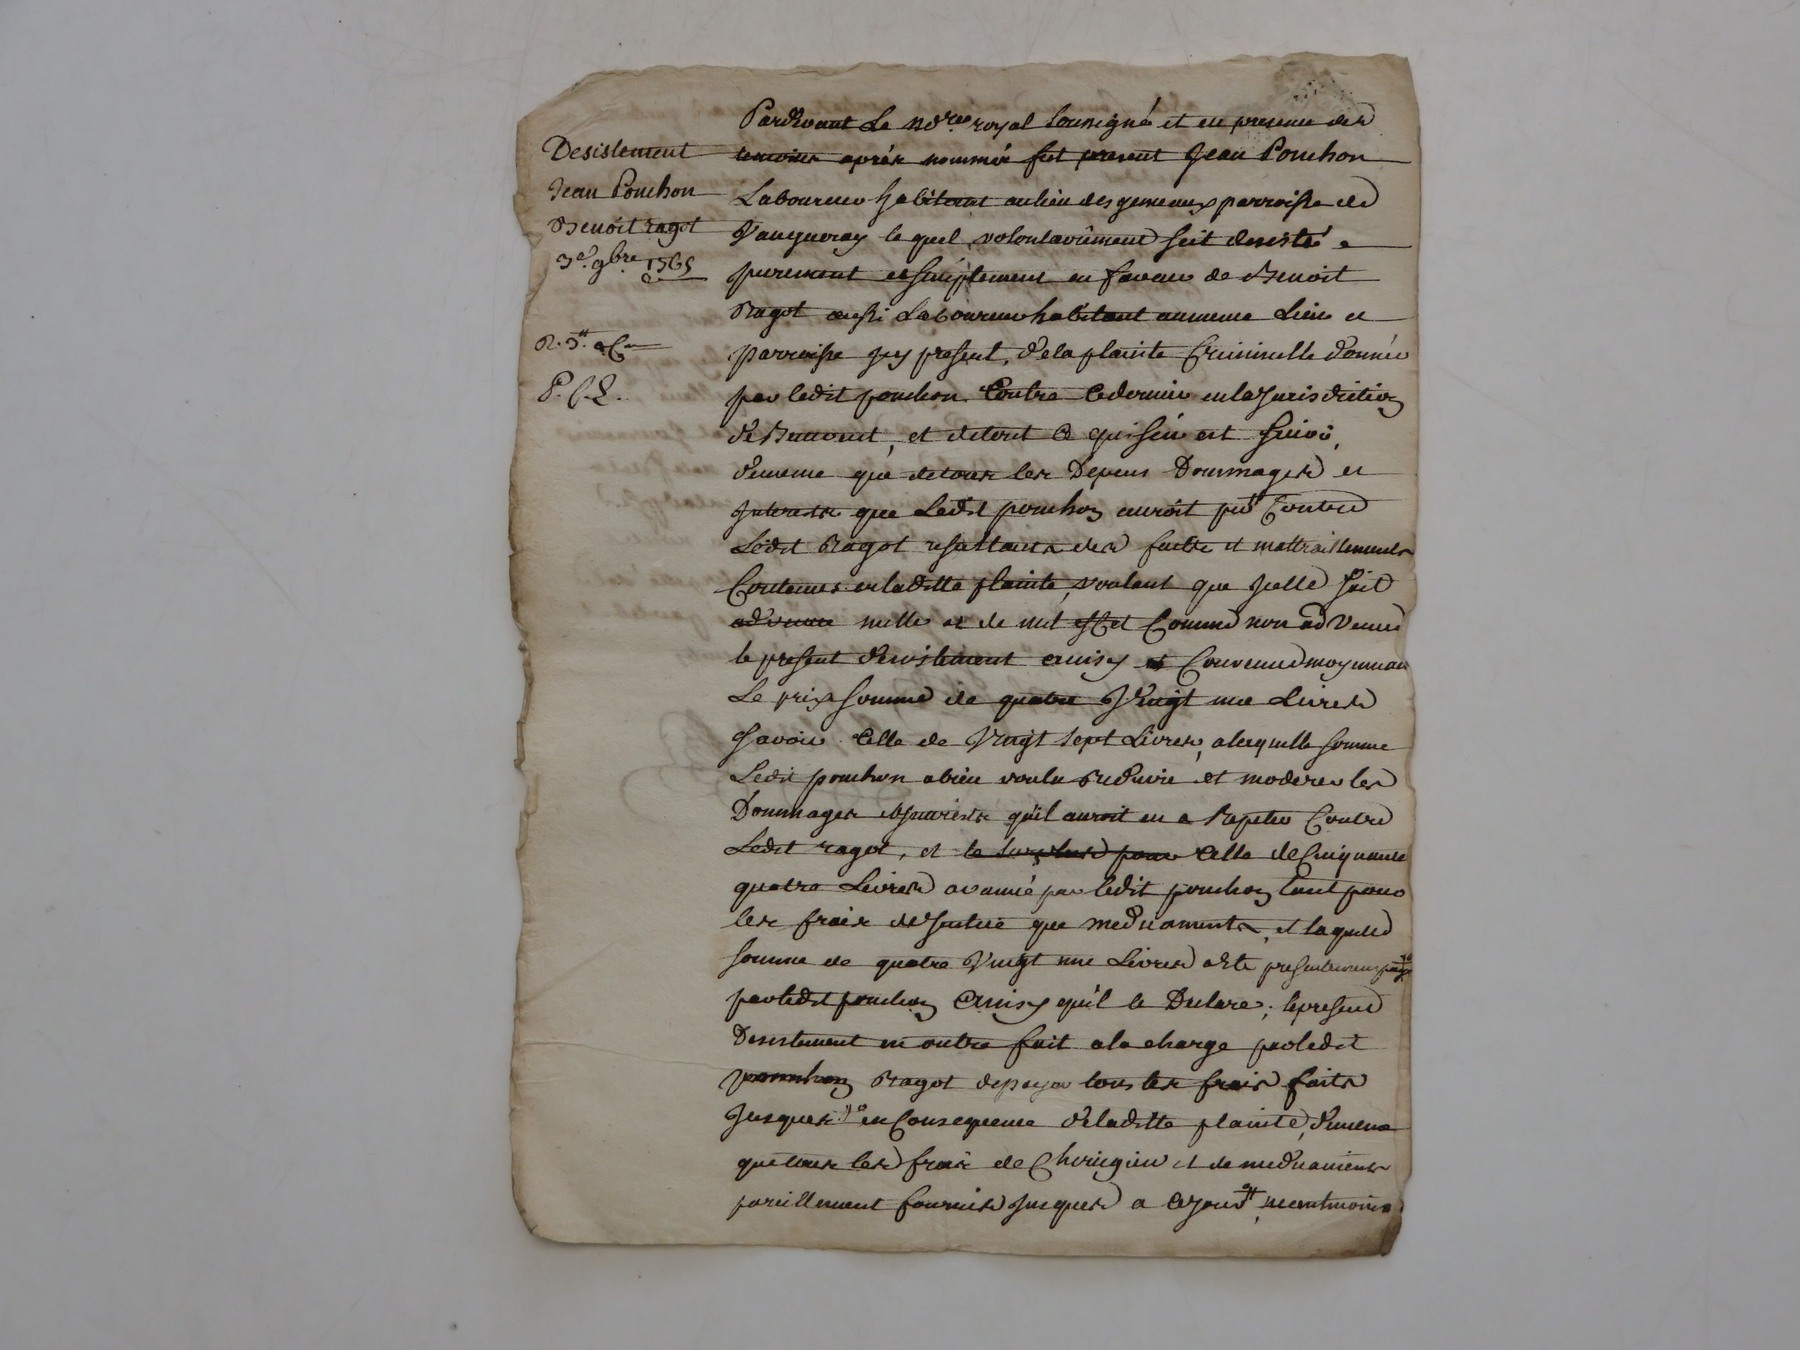 Desistement
Jean Ponchon
Benoit ragot
3e. 9bre 1765
R. 3tt
P. C. L.
Pardevant Le nore royal soussigné et en presence des
temoins après nommés fut present Jean Ponchon
Laboureur habitant au lieu des gemeaux parroisse de
Vaugneray lequel volontairement s'est desisté
purement et simplement en faveur de Benoit
Ragot aussi Laboureur habitant au meme Lieu et
parroisse icy present, de la plainte Criminelle donnée
par ledit ponchon Contre Ce dernier en la Jurisdiction
de, et de tout Ce qui s'en est suivi,
de meme que de tous les Depens Dommages et
Interests que Ledit ponchon auroit pu Contre
Ledit Ragot resultants des faits et mattraittements
Contenus en laditte plainte, voulant que Jcelle soit
nulle et de nul effet Comme non ad Venue
le present desistement ainsy Convenu moyennant
Le prix somme de quatre Vingt une Livres
scavoir Celle de Vingt sept Livres, a laquelle somme
Ledit ponchon a bien voulu Reduire et moderer les
Dommages Interests qu'il auroit eu a Repeter Contre
Ledit ragot, et le surplus pour Celle de Cinquante
quatre Livres avancé par ledit ponchon tant pour
les frais de Justice que medicaments, et laquelle
somme de quatre Vingt une Livres a eté presentement payé
par ledit ponchon ainsy qu'il le Declare; le present
Desistement en outre fait a la charge par ledit
ponchon Ragot de payer tous les frais faits
Jusques en Consequence de laditte plainte, de meme
que tous les frais de Chirurgien et de medicaments
pareillement fournis Jusques a Ce jour, neantmoins